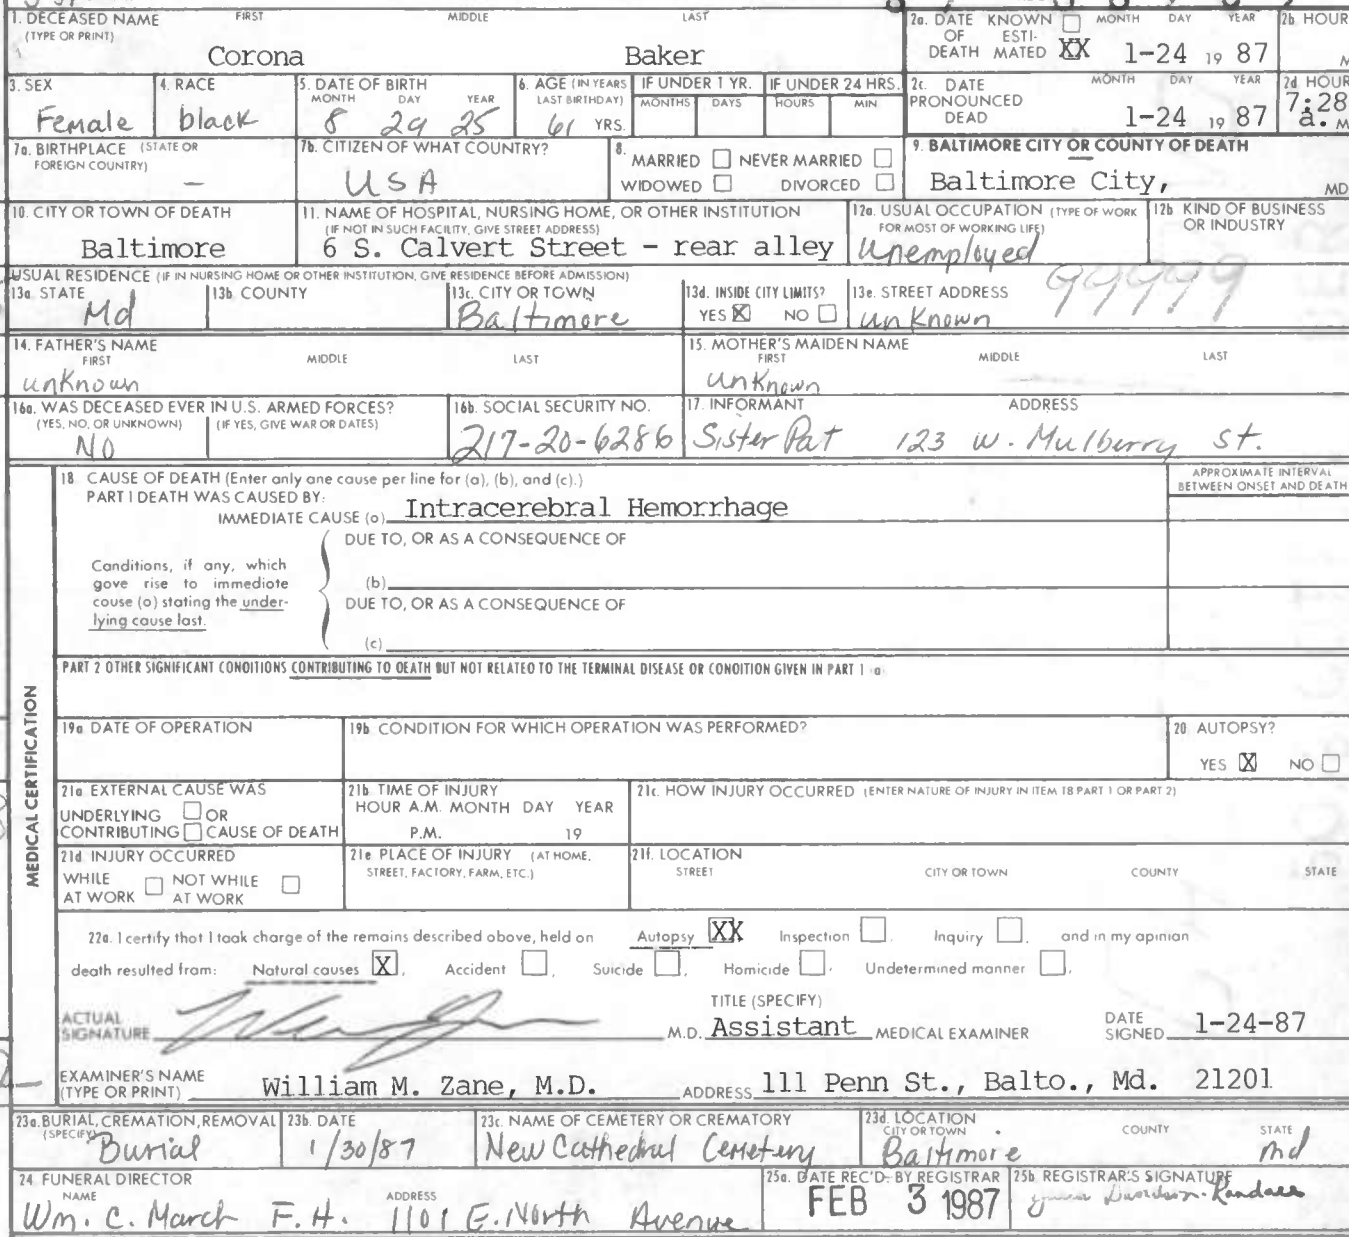 1. DECEASED NAME FIRST MIDDLE LAST
(TYPE OR PRINT)
Corona Baker
2a. DATE OF DEATH KNOWN ☐ ESTI-MATED XX MONTH DAY YEAR
1-24 19 87
2b HOUR
M
3. SEX
Female
4. RACE
black
5. DATE OF BIRTH
MONTH DAY YEAR
8 29 25
6. AGE (IN YEARS LAST BIRTHDAY)
61 YRS.
IF UNDER 1 YR.
MONTHS DAYS
IF UNDER 24 HRS.
HOURS MIN
2c. DATE PRONOUNCED DEAD MONTH DAY YEAR
1-24 19 87
2d HOUR
7:28
a. M
7a. BIRTHPLACE (STATE OR FOREIGN COUNTRY)
—
7b. CITIZEN OF WHAT COUNTRY?
USA
8. MARRIED ☐ NEVER MARRIED ☐
WIDOWED ☐ DIVORCED ☐
9. BALTIMORE CITY OR COUNTY OF DEATH
Baltimore City, MD
10. CITY OR TOWN OF DEATH
Baltimore
11. NAME OF HOSPITAL, NURSING HOME, OR OTHER INSTITUTION
(IF NOT IN SUCH FACILITY, GIVE STREET ADDRESS)
6 S. Calvert Street - rear alley
12a. USUAL OCCUPATION (TYPE OF WORK FOR MOST OF WORKING LIFE)
Unemployed
12b KIND OF BUSINESS OR INDUSTRY
USUAL RESIDENCE (IF IN NURSING HOME OR OTHER INSTITUTION, GIVE RESIDENCE BEFORE ADMISSION)
13a STATE
Md
13b. COUNTY
13c. CITY OR TOWN
Baltimore
13d. INSIDE CITY LIMITS?
YES ☒ NO ☐
13e. STREET ADDRESS
unknown
99999
14. FATHER'S NAME
FIRST MIDDLE LAST
unknown
15. MOTHER'S MAIDEN NAME
FIRST MIDDLE LAST
unknown
16a. WAS DECEASED EVER IN U.S. ARMED FORCES?
(YES, NO, OR UNKNOWN) (IF YES, GIVE WAR OR DATES)
NO
16b. SOCIAL SECURITY NO.
217-20-6286
17. INFORMANT ADDRESS
Sister Pat 123 W. Mulberry St.
MEDICAL CERTIFICATION
18 CAUSE OF DEATH (Enter only one cause per line for (a), (b), and (c).)
APPROXIMATE INTERVAL BETWEEN ONSET AND DEATH
PART I DEATH WAS CAUSED BY:
IMMEDIATE CAUSE (a) Intracerebral Hemorrhage
DUE TO, OR AS A CONSEQUENCE OF
Conditions, if any, which
gave rise to immediate
cause (a) stating the under-
lying cause last.
(b)
DUE TO, OR AS A CONSEQUENCE OF
(c)
PART 2 OTHER SIGNIFICANT CONDITIONS CONTRIBUTING TO DEATH BUT NOT RELATED TO THE TERMINAL DISEASE OR CONDITION GIVEN IN PART 1 (a)
19a DATE OF OPERATION
19b CONDITION FOR WHICH OPERATION WAS PERFORMED?
20 AUTOPSY?
YES ☒ NO ☐
21a EXTERNAL CAUSE WAS
UNDERLYING ☐ OR
CONTRIBUTING ☐ CAUSE OF DEATH
21b TIME OF INJURY
HOUR A.M. MONTH DAY YEAR
P.M. 19
21c. HOW INJURY OCCURRED (ENTER NATURE OF INJURY IN ITEM 18 PART 1 OR PART 2)
21d INJURY OCCURRED
WHILE AT WORK ☐ NOT WHILE AT WORK ☐
21e PLACE OF INJURY (AT HOME, STREET, FACTORY, FARM, ETC.)
21f. LOCATION
STREET CITY OR TOWN COUNTY STATE
22a. I certify that I took charge of the remains described above, held on Autopsy XX Inspection ☐, Inquiry ☐, and in my opinion
death resulted from: Natural causes ☒, Accident ☐, Suicide ☐, Homicide ☐, Undetermined manner ☐,
ACTUAL SIGNATURE
M.D.
TITLE (SPECIFY)
Assistant MEDICAL EXAMINER
DATE SIGNED 1-24-87
EXAMINER'S NAME
(TYPE OR PRINT) William M. Zane, M.D.
ADDRESS 111 Penn St., Balto., Md. 21201
23a. BURIAL, CREMATION, REMOVAL
(SPECIFY)
Burial
23b. DATE
1/30/87
23c. NAME OF CEMETERY OR CREMATORY
New Cathedral Cemetery
23d. LOCATION
CITY OR TOWN COUNTY STATE
Baltimore md
24 FUNERAL DIRECTOR
NAME ADDRESS
Wm. C. March F.H. 1101 E. North Avenue
25a. DATE REC'D. BY REGISTRAR
FEB 3 1987
25b REGISTRAR'S SIGNATURE
Davidson-Randall